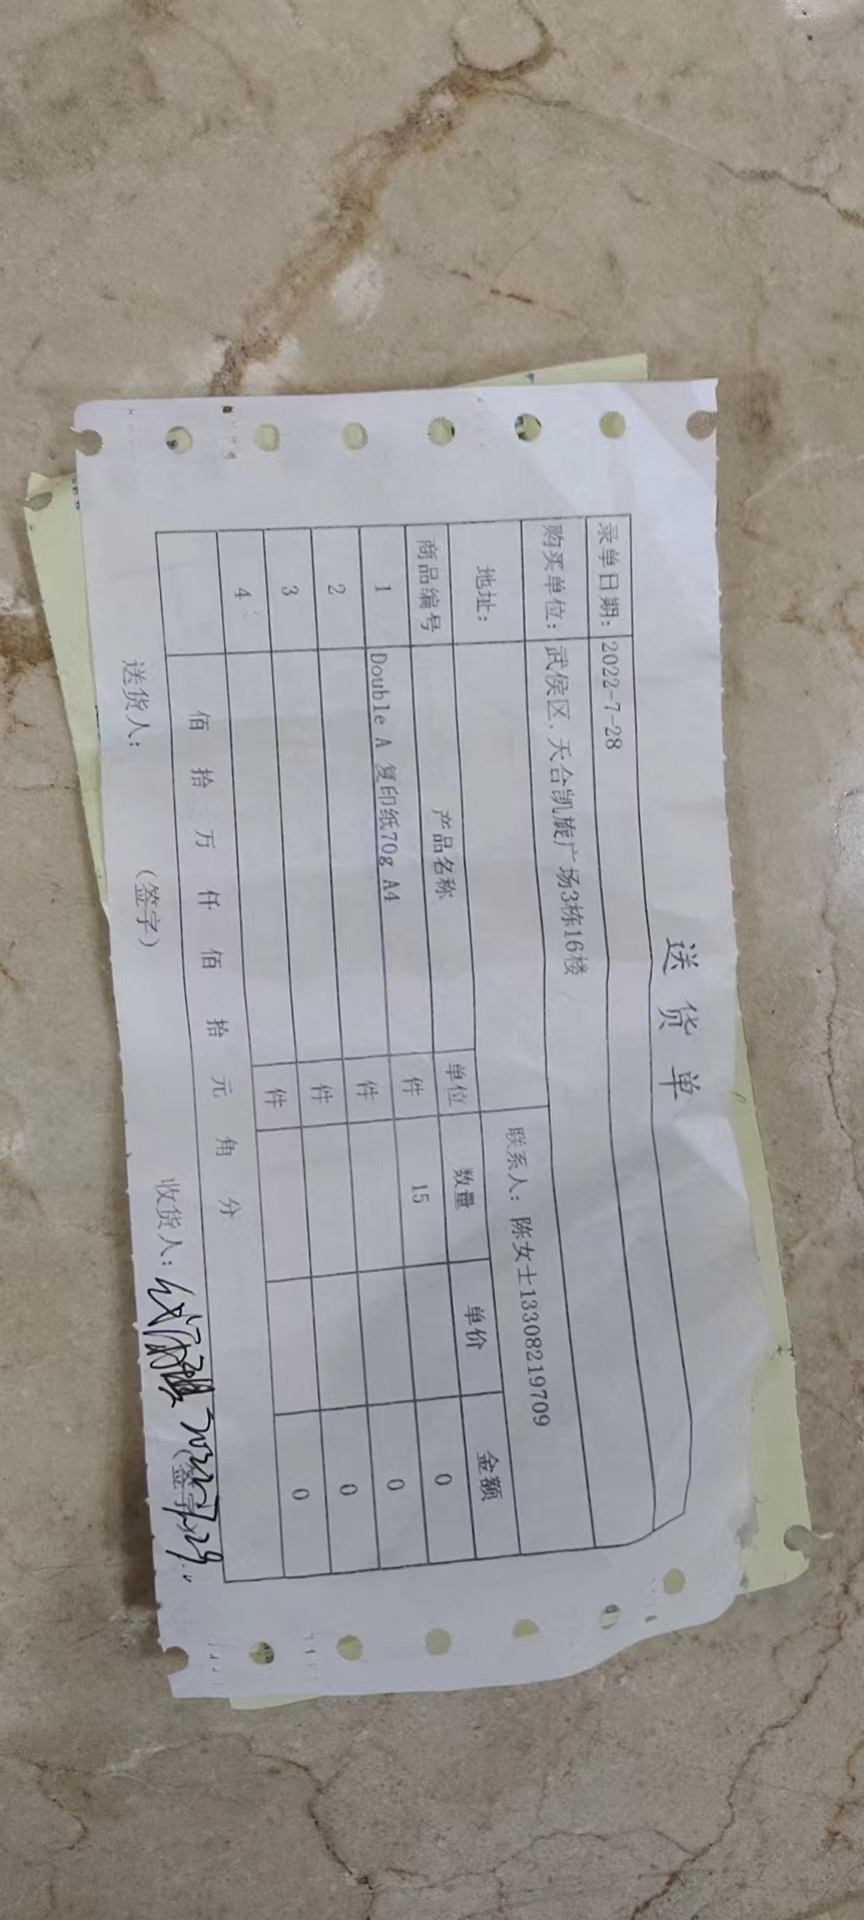 送货单
录单日期: 2022-7-28
购买单位: 武侯区.天合凯旋广场3栋16楼
地址: 联系人: 陈女士13308219709
商品编号 产品名称 单位 数量 单价 金额
1 Double A 复印纸70g A4 件 15 0
2 件 0
3 件 0
4 件 0
佰 拾 万 仟 佰 拾 元 角 分
送货人: (签字) 收货人: (签字)